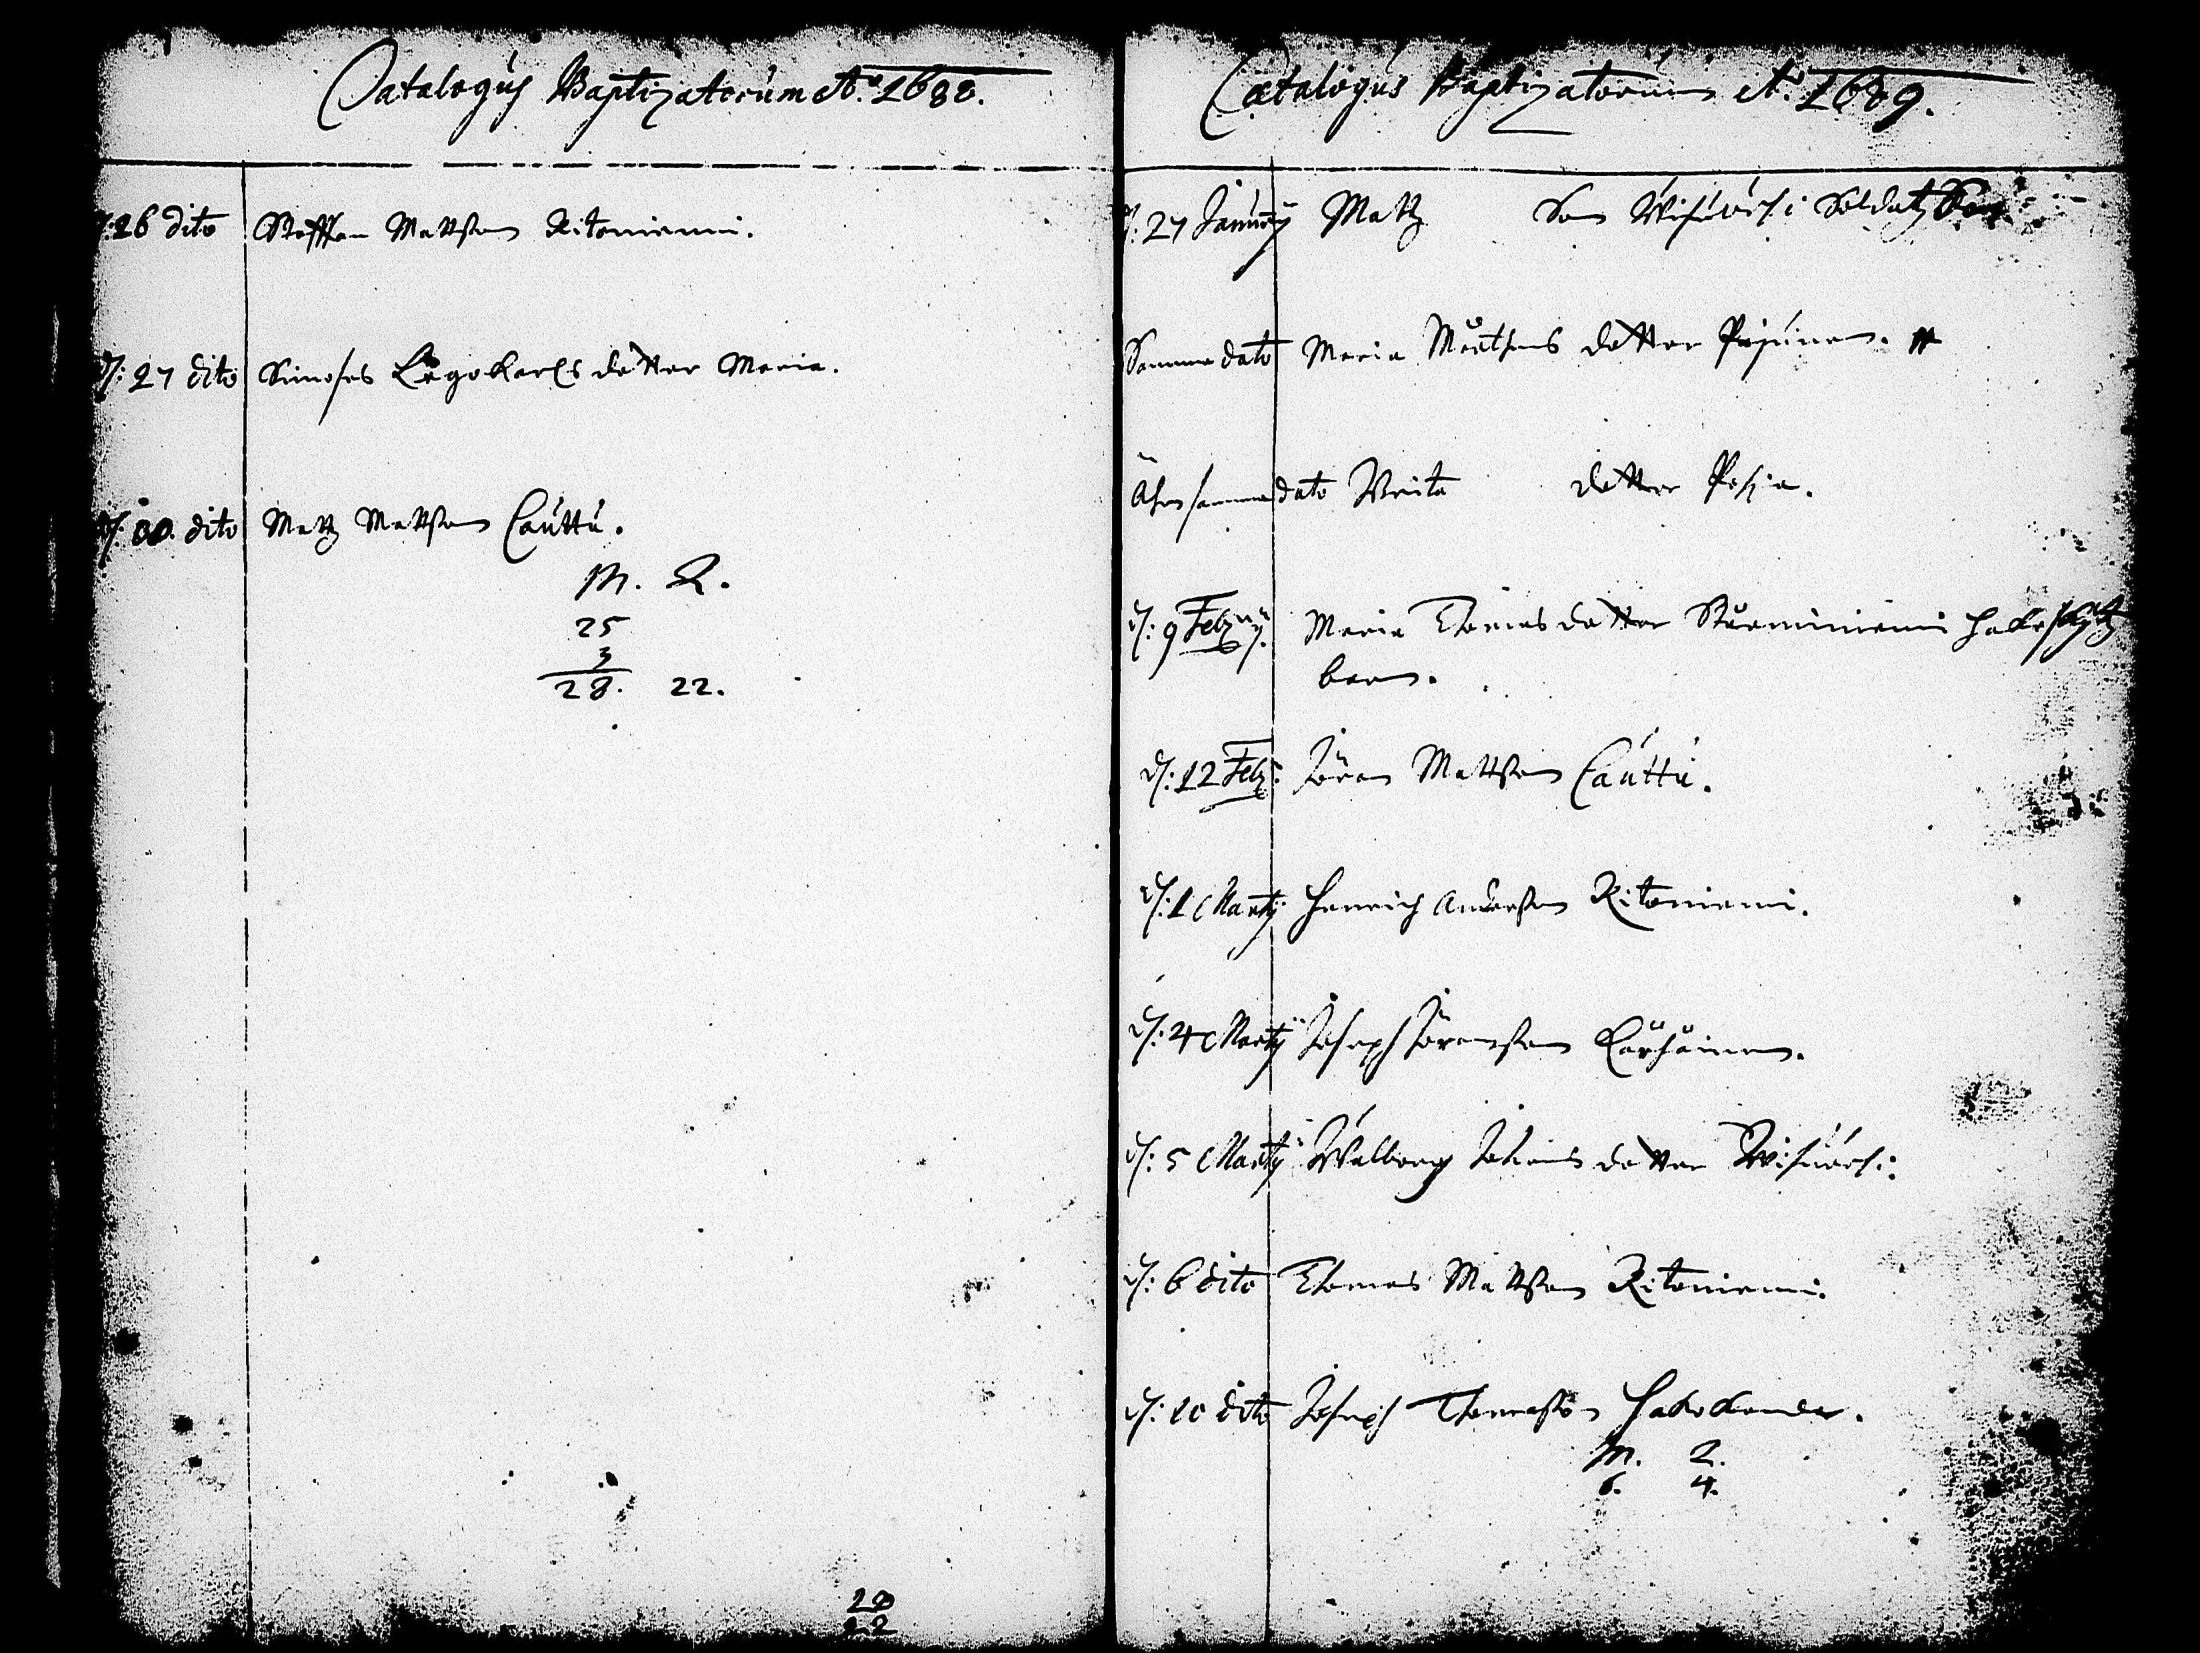 Catalogus Baptizatorum A:o 1688.
d: 26 dito Steffan Mattsson Ritoniemi.
d: 27 dito Simoses Legokarls dotter Maria.
d: 30. dito Matz Mattsson Cauttu.
M. Q.
25
3
28. 22.
28
22
Catalogus Baptizatorum A:o 1689.
d: 27 Januarij Matz Son Wisuörsi Soldatz Son
Samma dato Maria Mårthens dotter Pajunen.
Åhr samma dato Brita dotter Pesja.
d: 9 Febru: Maria Thomas dotter Starminiemi
barn.
d: 12 Feb: Jören Mattsson Cauttu.
d: 1 Martij Henrich Andersson Ritoniemi.
d: 4 Martij Joseph Jörensson Kärhäinen.
d: 5 Martij Walborg Johans dotter Wisuörsi.
d: 6 dito Thomas Mattsson Ritoniemi.
d: 10 dito Joseph Thomasson
M. Q.
6. 4.